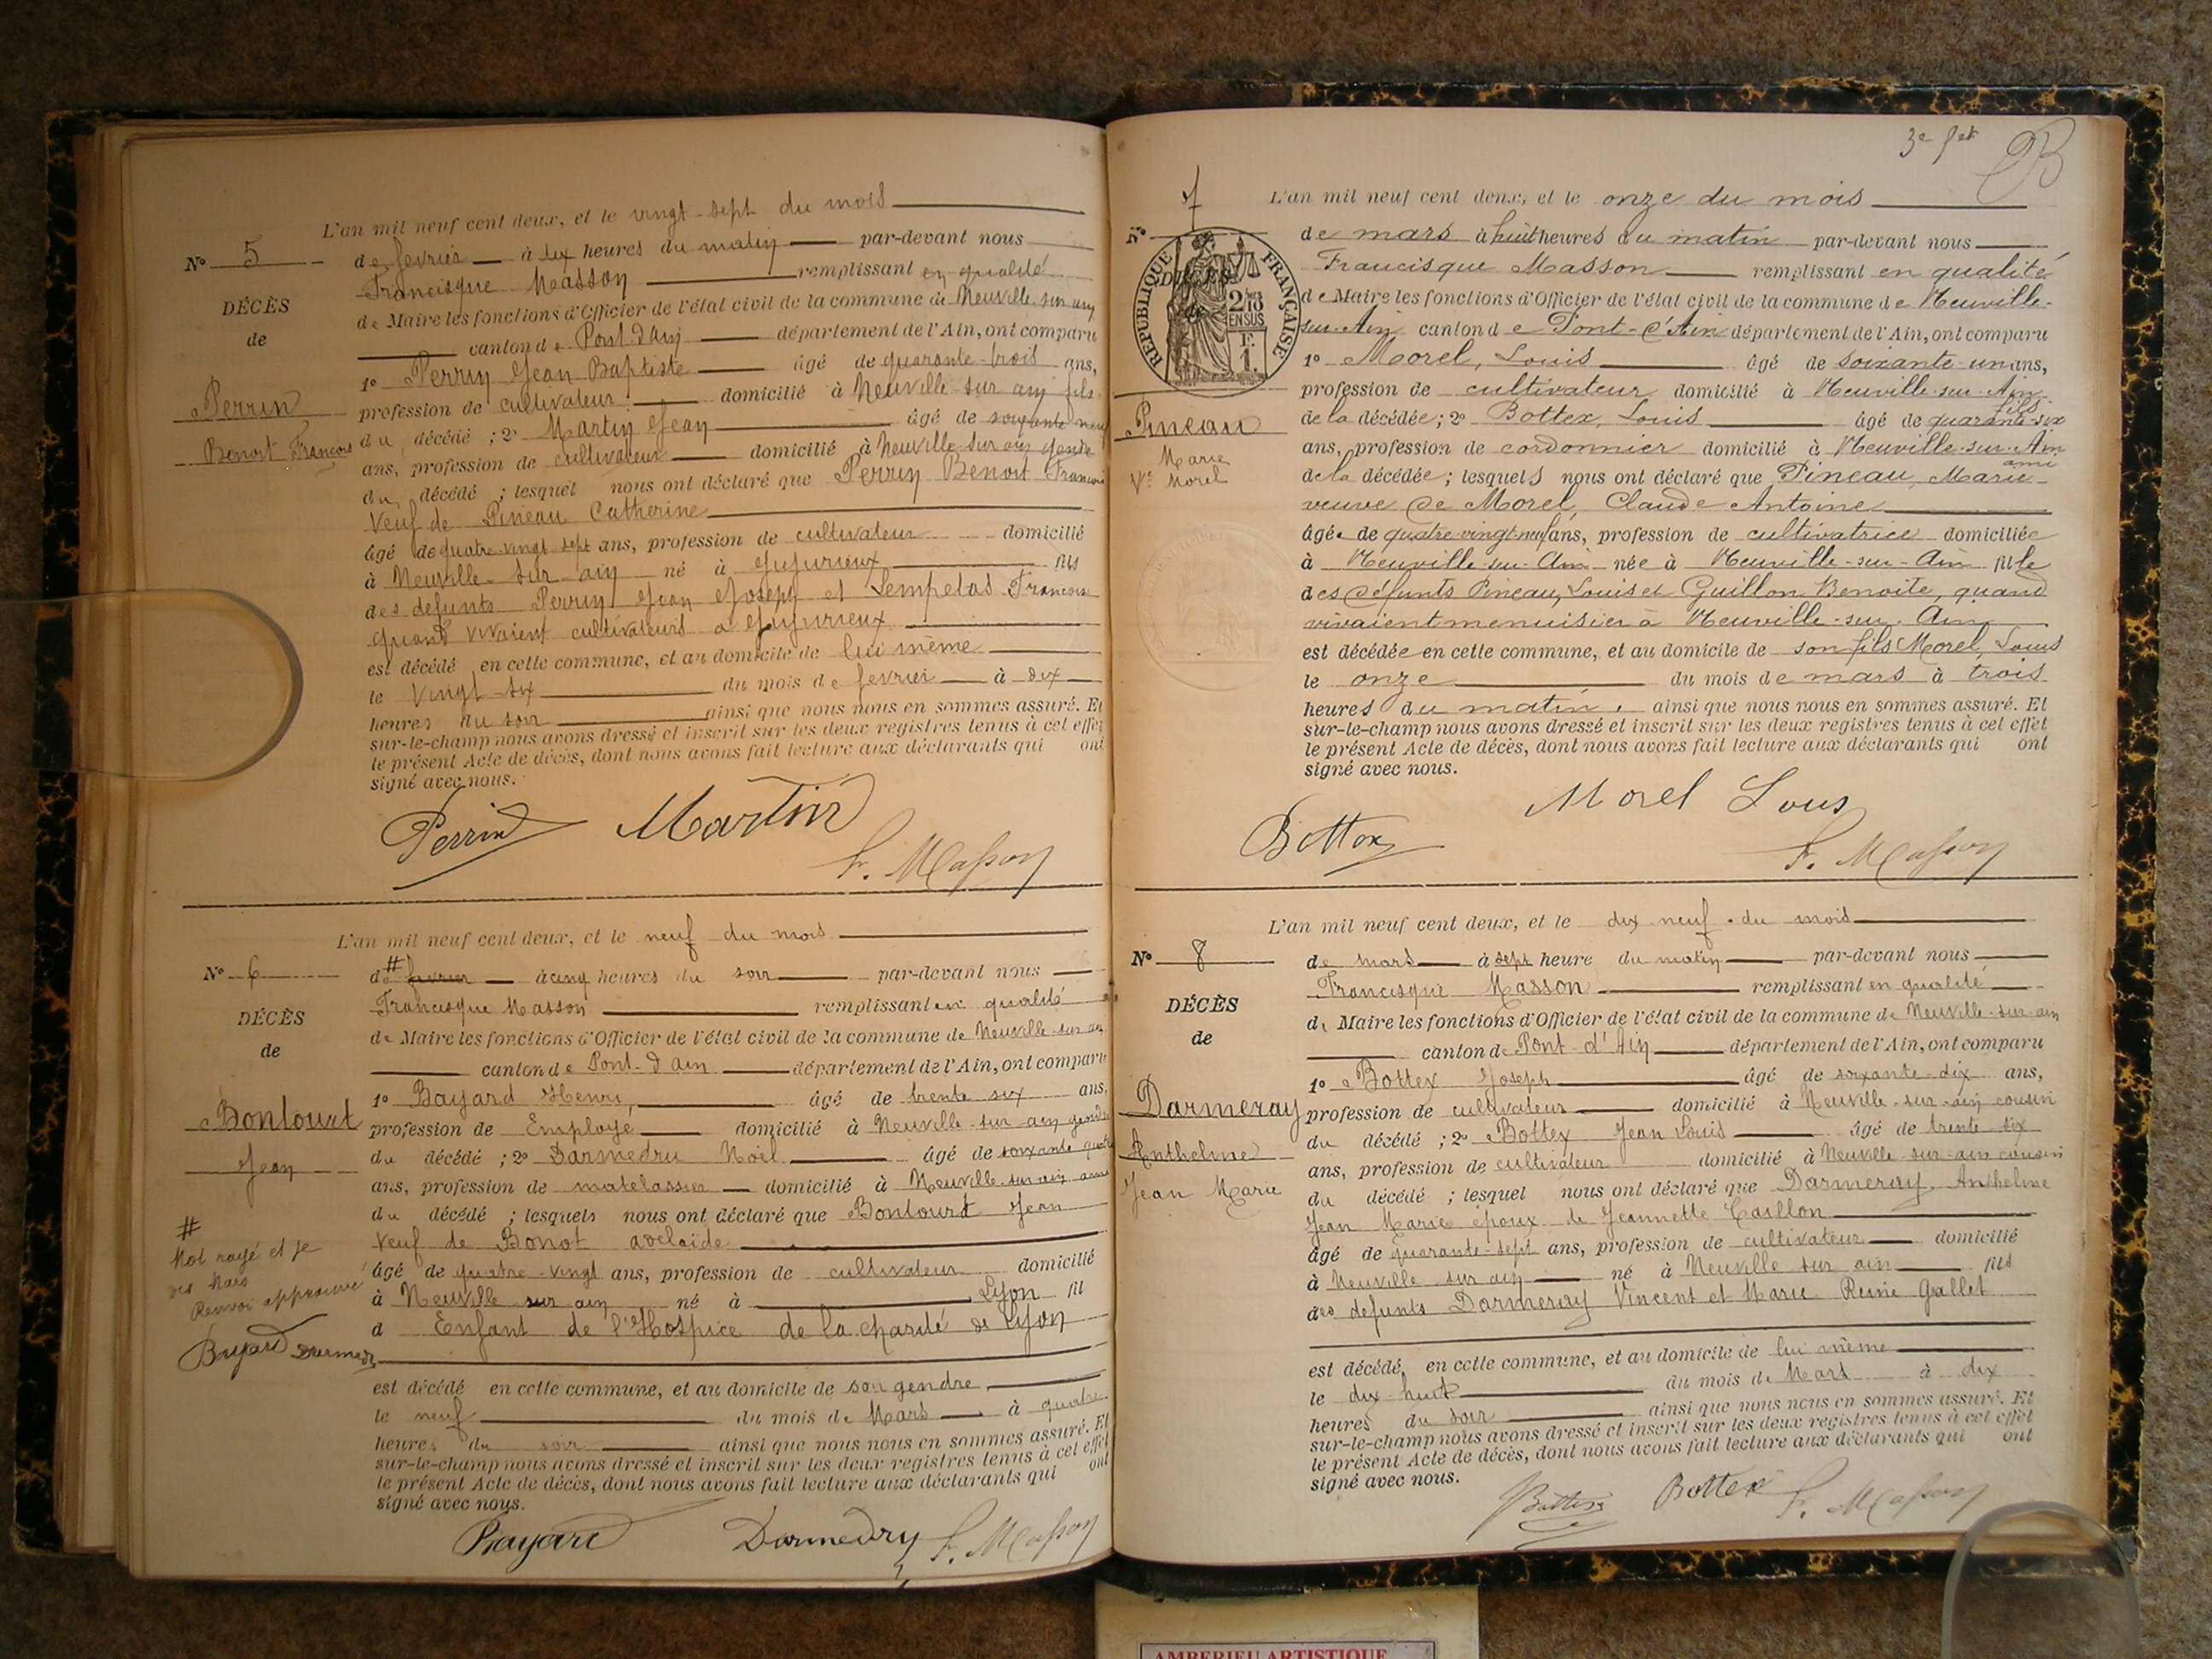 L'an mil neuf cent deux, et le vingt-sept du mois
No 5
de fevrier à dix heures du matin par-devant nous
Francisque Masson remplissant en qualité
DÉCÈS
de Maire les fonctions d'Officier de l'état civil de la commune de Neuville-sur-ain
de
canton de Pont-d'ain département de l'Ain, ont comparu
1o Perrin Jean Baptiste âgé de quarante-trois ans,
Perrin
profession de cultivateur domicilié à Neuville-sur ain fils
Benoit François
du décédé ; 2o Martin Jean âgé de soixante neuf
ans, profession de cultivateur domicilié à Neuville-sur ain gendre
du décédé ; lesquel nous ont déclaré que Perrin Benoit François
Veuf de Pineau Catherine
âgé de quatre-vingt sept ans, profession de cultivateur domicilié
à Neuville-sur ain né à Jujurieux fils
des defunts Perrin Jean Joseph et Françoise
quand vivaient cultivateurs a Jujurieux
est décédé en cette commune, et au domicile de lui même
le vingt-six du mois de fevrier à dix
heures du soir ainsi que nous nous en sommes assuré. Et
sur-le-champ nous avons dressé et inscrit sur les deux registres tenus à cet effet
le présent Acte de décès, dont nous avons fait lecture aux déclarants qui ont
signé avec nous.
Perrin Martin
F. Masson
L'an mil neuf cent deux, et le neuf du mois
No 6
de # fevrier à cinq heures du soir par-devant nous
Francisque Masson remplissant en qualité
DÉCÈS
de Maire les fonctions d'Officier de l'état civil de la commune de Neuville-sur-ain
de
canton de Pont-d'ain département de l'Ain, ont comparu
1o Bayard Henri, âgé de trente six ans,
Bontourt
profession de Employé domicilié à Neuville-sur-ain gendre
Jean
du décédé ; 2o Darmedru Noël âgé de soixante quatre
ans, profession de matelassier domicilié à Neuville-sur ain ami
du décédé ; lesquels nous ont déclaré que Bontourt Jean
#
Veuf de Bonot adelaide
Mot rayé et je
âgé de quatre-vingt ans, profession de cultivateur domicilié
dis Mars
Renvoi approuvé
à Neuville sur ain né à Lyon fil
d Enfant de l'Hospice de la charité de Lyon
Bayard Darmedr
est décédé en cette commune, et au domicile de son gendre
le neuf du mois de Mars à quatre
heures du soir ainsi que nous nous en sommes assuré. Et
sur-le-champ nous avons dressé et inscrit sur les deux registres tenus à cet effet
le présent Acte de décès, dont nous avons fait lecture aux déclarants qui ont
signé avec nous.
Bayard Darmedry F. Masson
3e
L'an mil neuf cent deux, et le onze du mois
7
No
de mars à huit heures du matin par-devant nous
Francisque Masson remplissant en qualité
RÉPUBLIQUE FRANÇAISE
DÉCÈS
de
2/10 EN SUS
1 F.
de Maire les fonctions d'Officier de l'état civil de la commune de Neuville-
sur-Ain canton de Pont-d'Ain département de l'Ain, ont comparu
1o Morel, Louis âgé de soixante-un ans,
profession de cultivateur domicilié à Neuville-sur-Ain
fils
Pineau
de la décédée ; 2o Bottex, Louis âgé de quarante-six
ans, profession de cordonnier domicilié à Neuville-sur-Ain
ami
Marie
Ve Morel
de la décédée ; lesquels nous ont déclaré que Pineau, Marie
veuve de Morel, Claude Antoine
âgée de quatre-vingt-neuf ans, profession de cultivatrice domiciliée
à Neuville-sur-Ain née à Neuville-sur-Ain fille
des défunts Pineau, Louis et Guillon Benoite, quand
vivaient menuisier à Neuville-sur-Ain
est décédée en cette commune, et au domicile de son fils Morel, Louis
le onze du mois de mars à trois
heures du matin, ainsi que nous nous en sommes assuré. Et
sur-le-champ nous avons dressé et inscrit sur les deux registres tenus à cet effet
le présent Acte de décès, dont nous avons fait lecture aux déclarants qui ont
signé avec nous.
Morel Lous
Bottex
F. Masson
L'an mil neuf cent deux, et le dix neuf du mois
No 8
de mars à sept heure du matin par-devant nous
Francisque Masson remplissant en qualité
DÉCÈS
de Maire les fonctions d'Officier de l'état civil de la commune de Neuville-sur-ain
de
canton de Pont-d'Ain département de l'Ain, ont comparu
1o Bottex Joseph âgé de soixante-dix ans,
Darmeray
profession de cultivateur domicilié à Neuville-sur-ain cousin
Anthelme
du décédé ; 2o Bottex Jean Louis âgé de trente six
Jean Marie
ans, profession de cultivateur domicilié à Neuville-sur-ain cousin
du décédé ; lesquel nous ont déclaré que Darmeray Anthelme
Jean Marie époux de Jeannette Caillon
âgé de quarante-sept ans, profession de cultivateur domicilié
à Neuville sur ain né à Neuville sur ain fils
des defunts Darmeray Vincent et Marie Reine Gallet
est décédé, en cette commune, et au domicile de lui même
le dix huit du mois de Mars à dix
heures du soir ainsi que nous nous en sommes assuré. Et
sur-le-champ nous avons dressé et inscrit sur les deux registres tenus à cet effet
le présent Acte de décès, dont nous avons fait lecture aux déclarants qui ont
signé avec nous.
Bottex Bottex F. Masson
AMBERIEU ARTISTIQUE